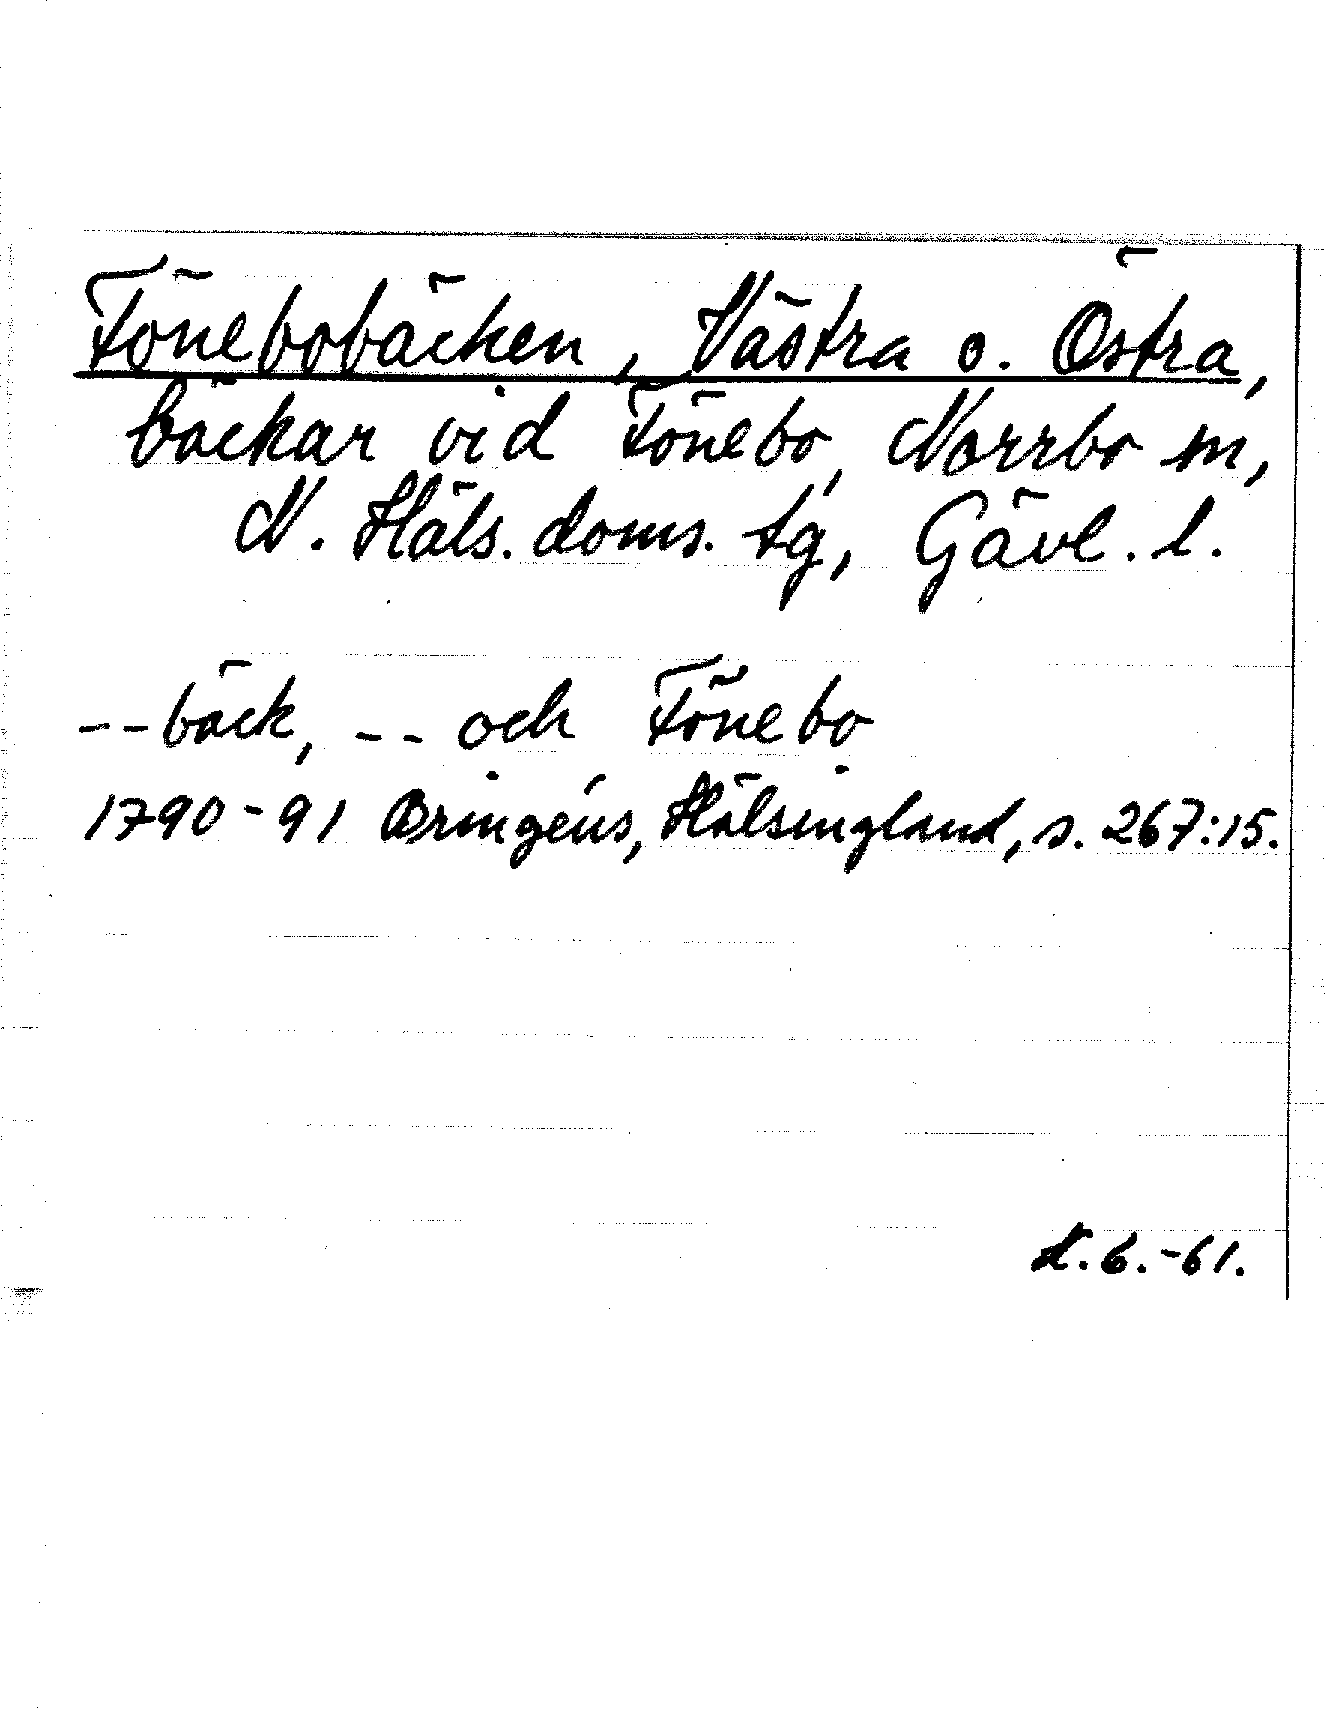 Fönebobäcken, Västra o. Östra,
bäckar vid Fönebo, Norrbo sn,
N. Häls. doms. tg, Gävl. l.
--bäck, -- och Fönebo
1790-91 Bringéus, Hälsingland, s. 267:15.
N.6.-61.